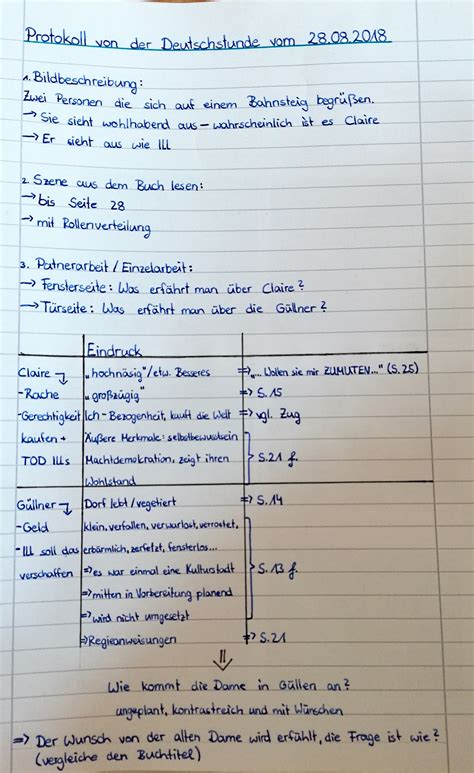 Protokoll von der Deutschstunde vom 28.08.2018
1. Bildbeschreibung:
Zwei Personen die sich auf einem Bahnsteig begrüßen.
→ Sie sieht wohlhabend aus – wahrscheinlich ist es Claire
→ Er sieht aus wie Ill
2. Szene aus dem Buch lesen:
→ bis Seite 28
→ mit Rollenverteilung
3. Patnerarbeit / Einzelarbeit:
→ Fensterseite: Was erfährt man über Claire?
→ Türseite: Was erfährt man über die Güllner?
Eindruck
Claire → „hochnäsig"/etw. Besseres ⇒ „... Wollen sie mir ZUMUTEN..." (S. 25)
- Rache „großzügig" ⇒ S. 15
- Gerechtigkeit Ich - Bezogenheit, kauft die Welt ⇒ vgl. Zug
kaufen + Äußere Merkmale: selbstbewusstsein
TOD Ills Machtdemokration, zeigt ihren } S. 21 f.
Wohlstand
Güllner → Dorf lebt / vegetiert ⇒ S. 14
- Geld klein, verfallen, verwarlost, verrostet,
- Ill soll das erbärmlich, zerfetzt, fensterlos...
verschaffen ⇒ es war einmal eine Kulturstadt } S. 13 f.
⇒ mitten in Vorbereitung planend
⇒ wird nicht umgesetzt
⇒ Regieanweisungen ⇒ S. 21
⇓
Wie kommt die Dame in Güllen an?
ungeplant, kontrastreich und mit Wünschen
⇒ Der Wunsch von der alten Dame wird erfühlt, die Frage ist wie?
(vergleiche den Buchtitel)